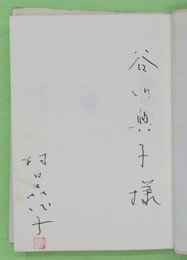 谷川典子様
村田喜代子